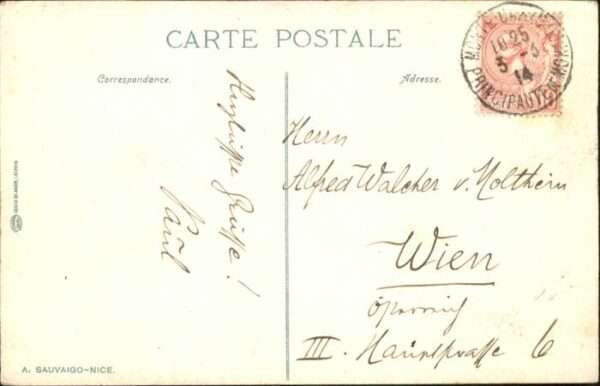 CARTE POSTALE
Correspondance.
Adresse.
MONTE-CARLO
10 25
5 - 3
14
PRINCIPAUTÉ DE MONACO
Herzlichste Grüsse!
Paul
Herrn
Alfred Walcher v. Moltheim
Wien
Österreich
III. Hauptstrasse 6
A. SAUVAIGO-NICE.